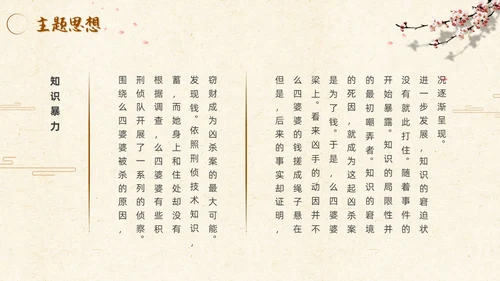 主题思想
知识暴力
围绕么四婆婆被杀的原因,
刑侦队开展了一系列的侦察。
根据调查,么四婆婆有些积
蓄,而她身上和住处却没有
发现钱。依照刑侦技术知识,
窃财成为凶杀案的最大可能。
但是,后来的事实却证明,
么四婆婆的钱搓成绳子悬在
梁上。看来凶手的动因并不
是为了钱。于是,么四婆婆
的死因,就成为这起凶杀案
的最初嘲弄者。知识的窘境
开始暴露。知识的局限性并
没有就此打住。随着事件的
进一步发展,知识的窘迫状
况逐渐呈现。